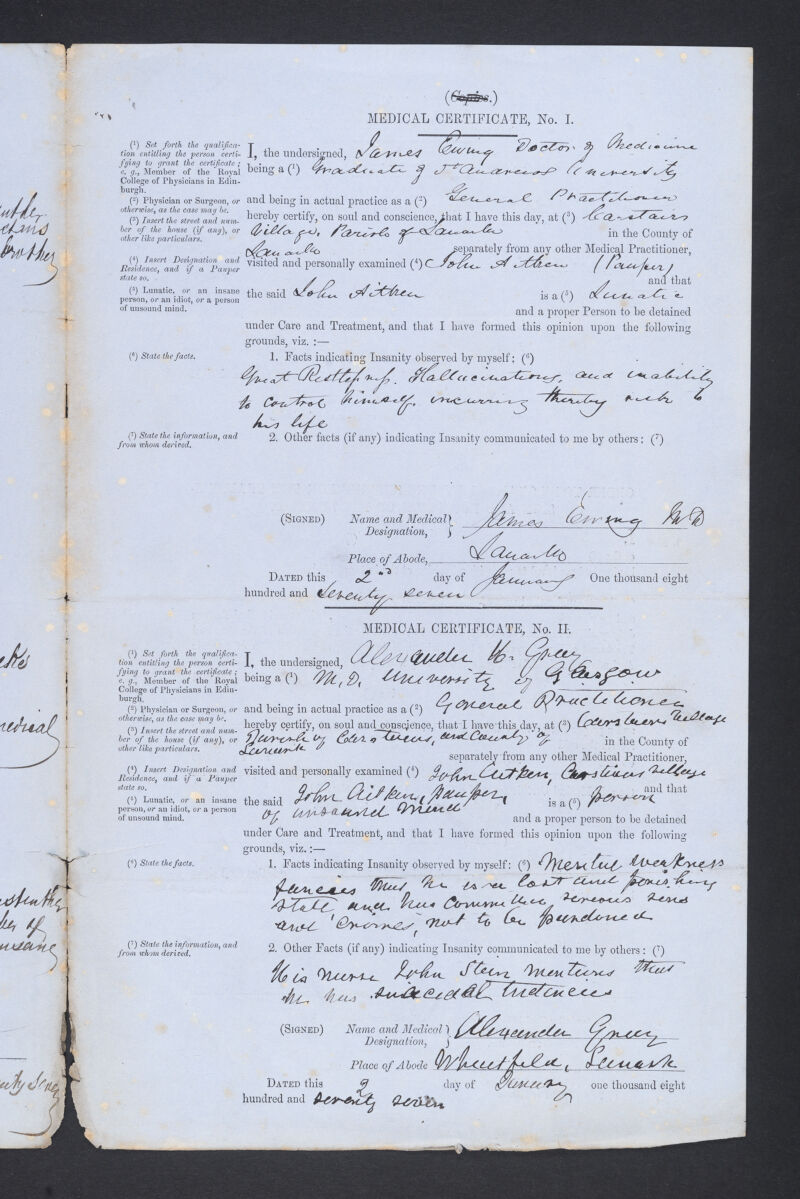 (Copies.)
MEDICAL CERTIFICATE, No. I.
(1) Set forth the qualifica-
tion entitling the person certi-
fying to grant the certificate;
e. g., Member of the Royal
College of Physicians in Edin-
burgh.
(2) Physician or Surgeon, or
otherwise, as the case may be.
(3) Insert the street and num-
ber of the house (if any), or
other like particulars.
(4) Insert Designation and
Residence, and if a Pauper
state so.
(5) Lunatic, or an insane
person, or an idiot, or a person
of unsound mind.
I, the undersigned, James Ewing Doctor of Medicine
being a (1) Graduate of St Andrews University
and being in actual practice as a (2) General Practitioner
hereby certify, on soul and conscience, that I have this day, at (3) Carstairs
Village, Parish of Lanark in the County of
Lanark separately from any other Medical Practitioner,
visited and personally examined (4) John Aitken (Pauper)
and that
the said John Aitken is a (5) Lunatic
and a proper Person to be detained
under Care and Treatment, and that I have formed this opinion upon the following
grounds, viz. :—
(6) State the facts.
1. Facts indicating Insanity observed by myself: (6)
Great Restlessness. Hallucinations, and inability
to control himself, incurring thereby risk to
his life
(7) State the information, and
from whom derived.
2. Other facts (if any) indicating Insanity communicated to me by others: (7)
(SIGNED) Name and Medical Designation, James Ewing M D
Place of Abode, Lanark
DATED this 2nd day of January One thousand eight
hundred and seventy seven
MEDICAL CERTIFICATE, No. II.
(1) Set forth the qualifica-
tion entitling the person certi-
fying to grant the certificate;
e. g., Member of the Royal
College of Physicians in Edin-
burgh.
(2) Physician or Surgeon, or
otherwise, as the case may be.
(3) Insert the street and num-
ber of the house (if any), or
other like particulars.
(4) Insert Designation and
Residence, and if a Pauper
state so.
(5) Lunatic, or an insane
person, or an idiot, or a person
of unsound mind.
I, the undersigned, Alexander Gray
being a (1) M.D. University of Glasgow
and being in actual practice as a (2) General Practitioner
hereby certify, on soul and conscience, that I have this day, at (3) Carstairs Village
Parish of Carstairs, and County of in the County of
Lanark separately from any other Medical Practitioner,
visited and personally examined (4) John Aitken, Carstairs Village
and that
the said John Aitken, pauper, is a (5) person
of unsound mind and a proper person to be detained
under Care and Treatment, and that I have formed this opinion upon the following
grounds, viz. :—
(6) State the facts.
1. Facts indicating Insanity observed by myself: (6) Mental weakness
fancies that he is in a lost and perishing
state and has committed serious sins
and crimes, not to be pardoned
(7) State the information, and
from whom derived.
2. Other Facts (if any) indicating Insanity communicated to me by others: (7)
His nurse John Stein mentions that
he has suicidal tendencies
(SIGNED) Name and Medical Designation, Alexander Gray
Place of Abode Wheatfield, Lanark
DATED this 2 day of January one thousand eight
hundred and seventy seven
brother
medical
of